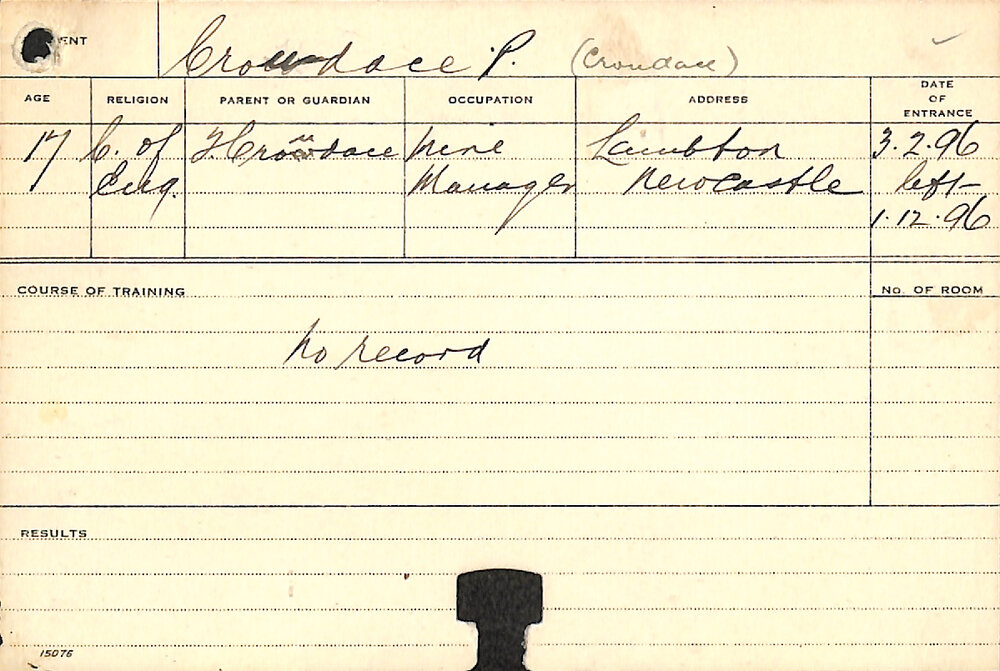 ENT
Croudace P. (Croudace)
AGE RELIGION PARENT OR GUARDIAN OCCUPATION ADDRESS DATE OF ENTRANCE
17 C. of Eng. F. Croudace Mine Manager Lambton Newcastle 3.2.96
left
1.12.96
COURSE OF TRAINING No. OF ROOM
No record
RESULTS
15076